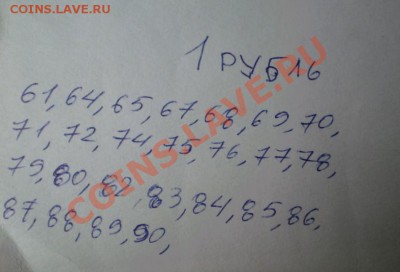 COINS.LAVE.RU
1 РУБ16
61, 64, 65, 67, 68, 69, 70,
71, 72, 74, 75, 76, 77, 78,
79, 80, 82, 83, 84, 85, 86,
87, 88, 89, 90,
COINS.LAVE.RU
COINS.LAVE.RU